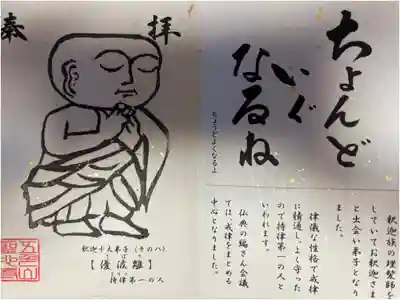 奉
拝
釈迦十大弟子(その八)
【優波離】
持律第一の人
ちょんど
いぐ
なるね
ちょうどよくなるよ
釈迦族の理髪師を
していてお釈迦さま
と出会い弟子となり
ました。
律儀な性格で戒律
に精通し、よく守った
ので持律第一の人と
いわれます。
仏典の編さん会議
では、戒律をまとめる
中心となりました。